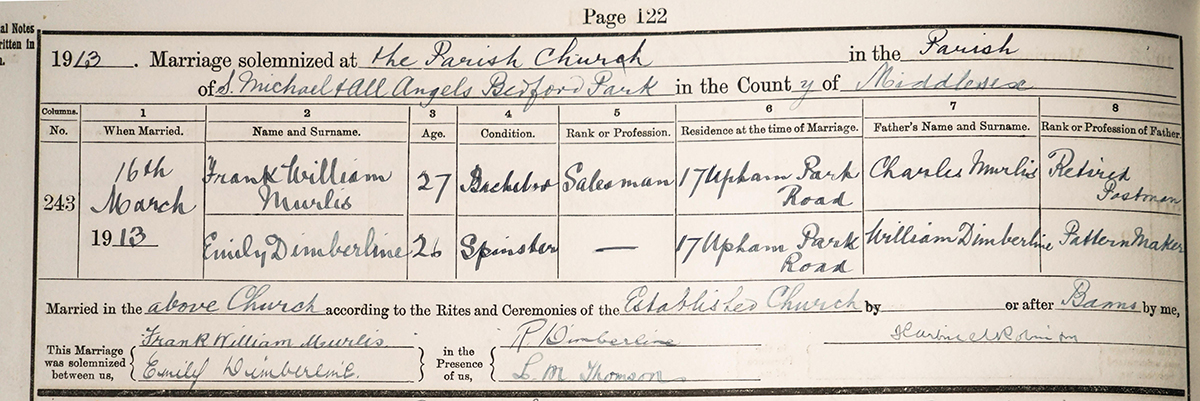 Page 122
al Notes
ritten in
n.
1913. Marriage solemnized at the Parish Church in the Parish
of S. Michael & All Angels Bedford Park in the County of Middlesex
Columns. 1 2 3 4 5 6 7 8
No. When Married. Name and Surname. Age. Condition. Rank or Profession. Residence at the time of Marriage. Father's Name and Surname. Rank or Profession of Father.
16th Frank William 27 Bachelor Salesman 17 Upham Park Charles Murlis Retired
243 March Murlis Road Postman
1913 Emily Dimberline 26 Spinster — 17 Upham Park William Dimberline Pattern Maker
Road
Married in the above Church according to the Rites and Ceremonies of the Established Church by or after Banns by me,
This Marriage was solemnized between us, { Frank William Murlis } in the Presence of us, { R. Dimberline
Emily Dimberline. L. M. Thomson